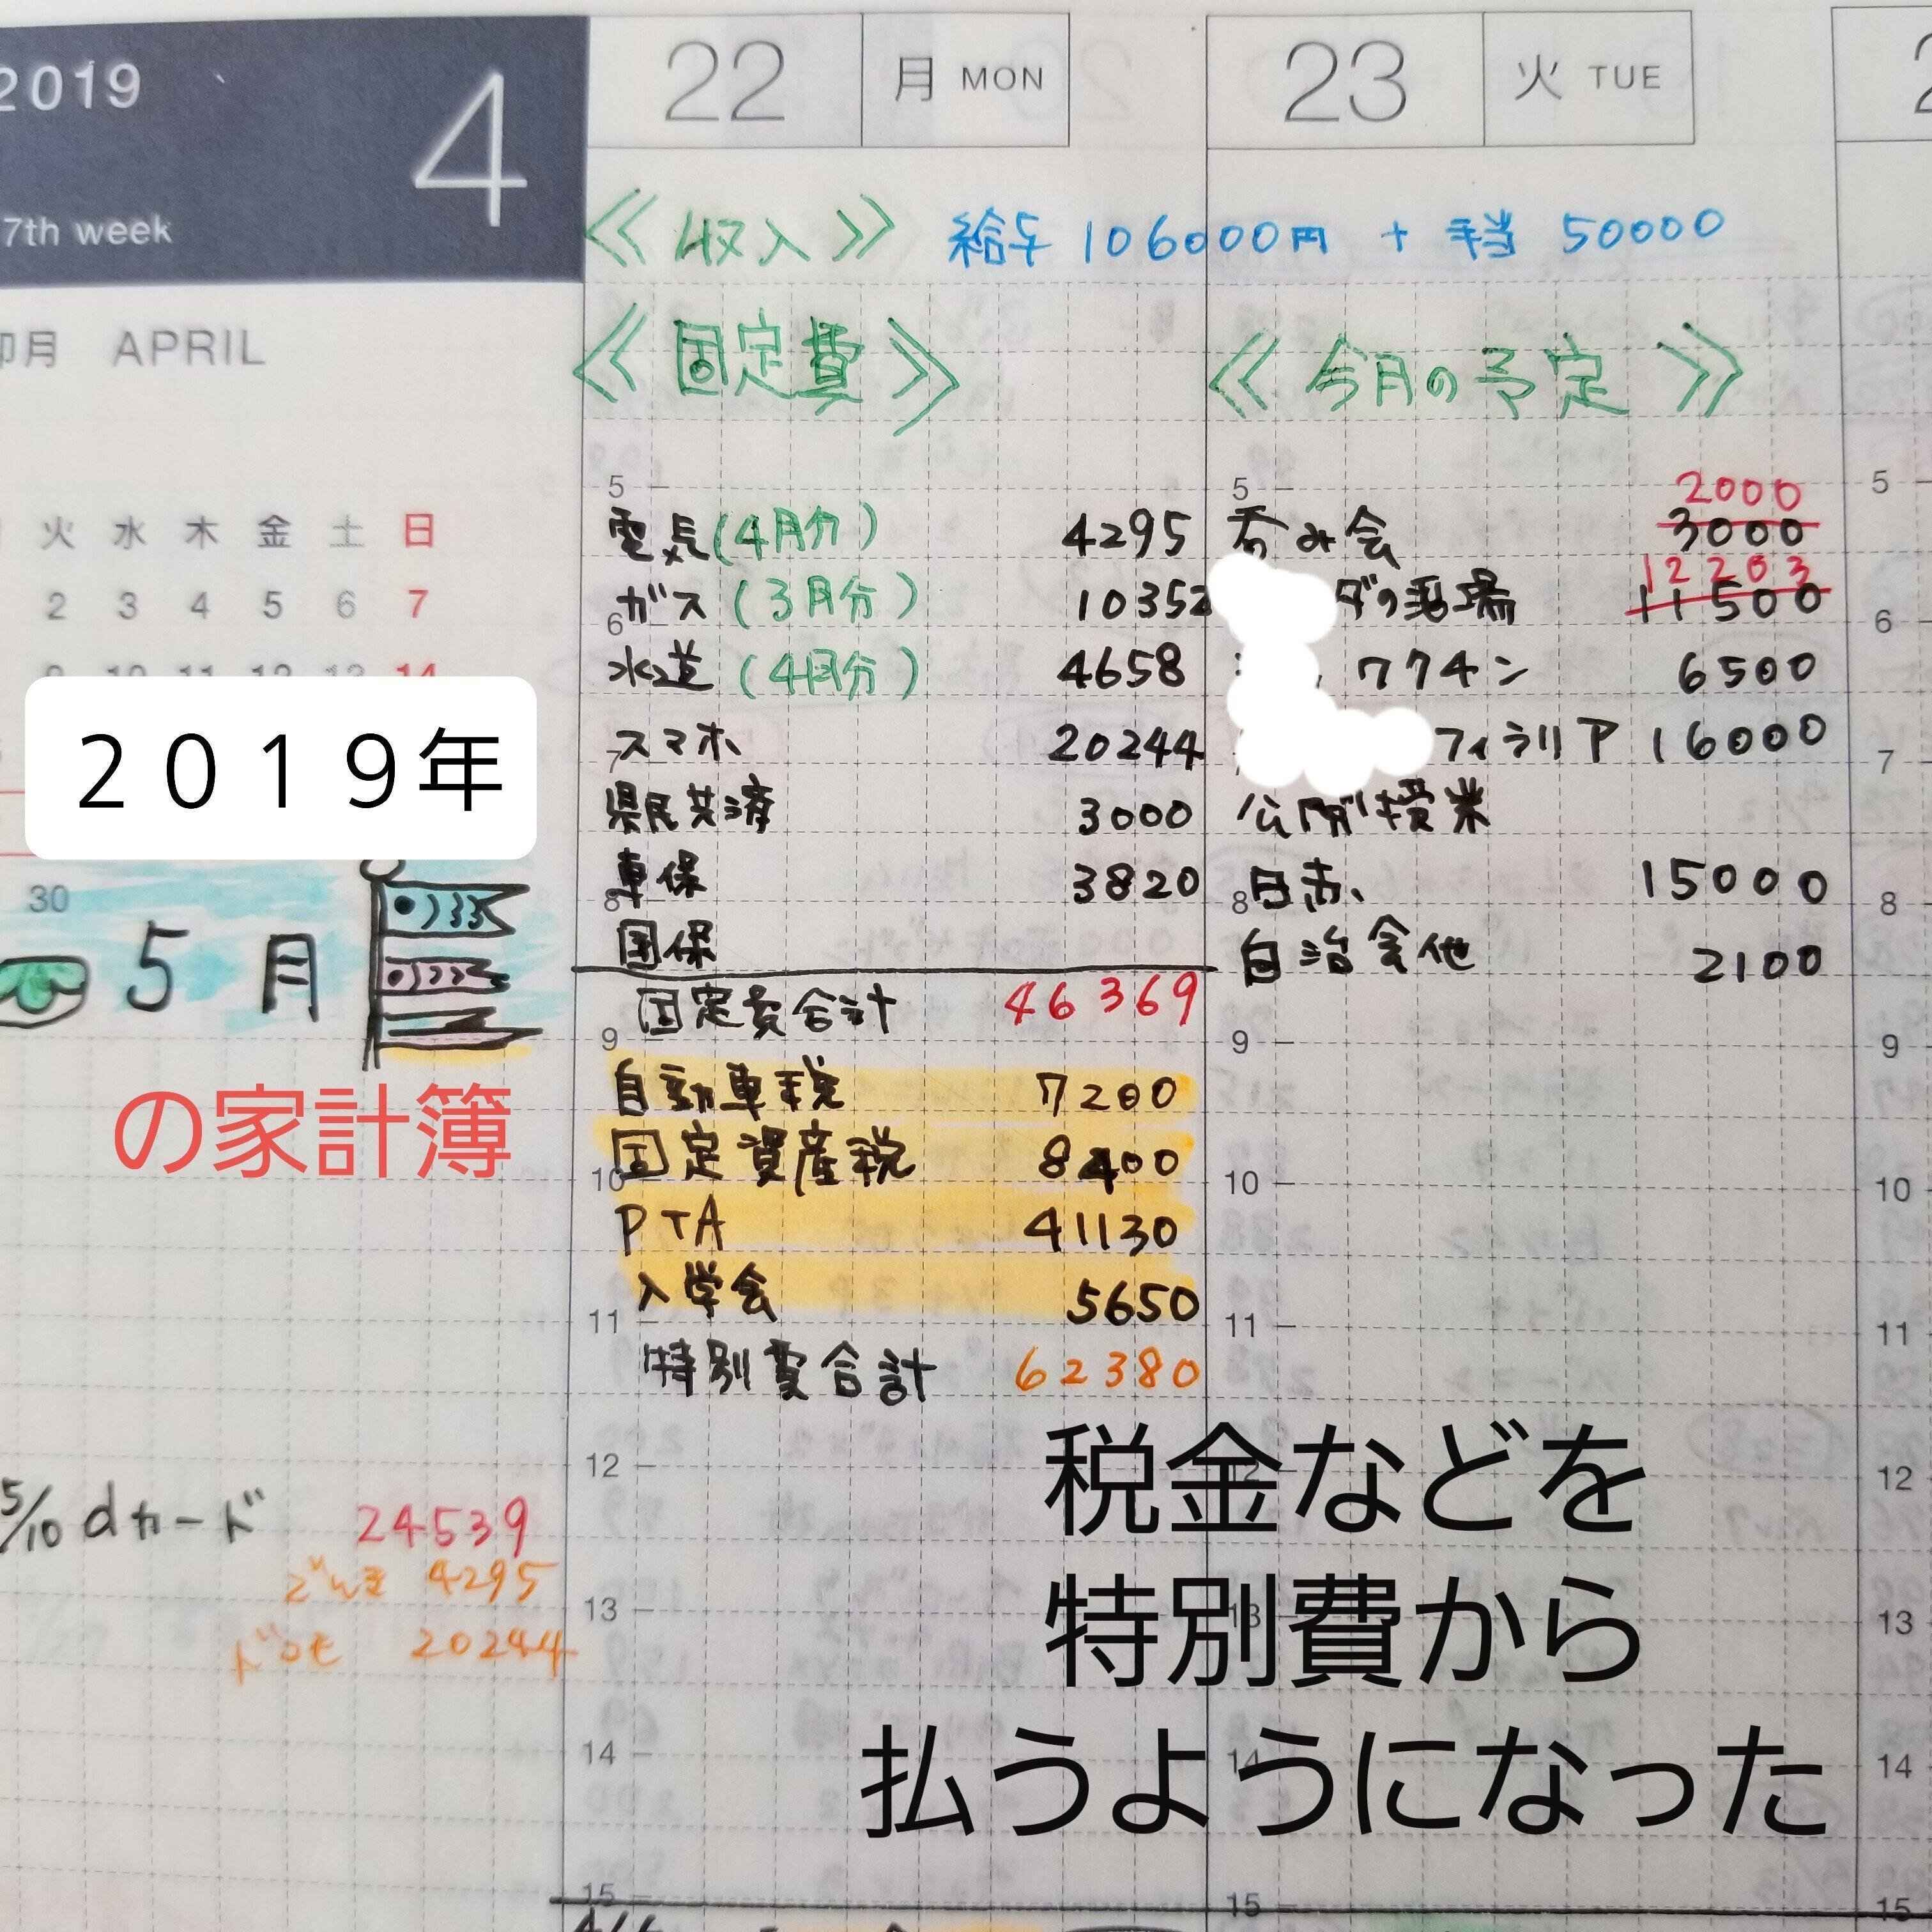 2019 4
7th week
22 月 MON
23 火 TUE
卯月 APRIL
火 水 木 金 土 日
2 3 4 5 6 7
9 10 11 12 13 14
30
2019年
5月
の家計簿
5/10 dカード 24539
でんき 4295
ドコモ 20244
≪収入≫ 給与 106000円 + 手当 50000
≪固定費≫
5
電気(4月分) 4295
ガス(3月分) 10352
6
水道(4月分) 4658
スマホ 20244
7
県民共済 3000
車保 3820
8
国保
固定費合計 46369
9
自動車税 7200
固定資産税 8400
10
PTA 41130
入学会 5650
11
特別費合計 62380
12
13
14
15
≪今月の予定≫
5
2000
呑み会 3000
12203
ダの現場 11500
ワクチン 6500
フィラリア 16000
公開授業
8
日赤、 15000
自治会他 2100
9
10
11
12
13
14
15
5
6
7
8
9
10
11
12
13
14
15
税金などを
特別費から
払うようになった